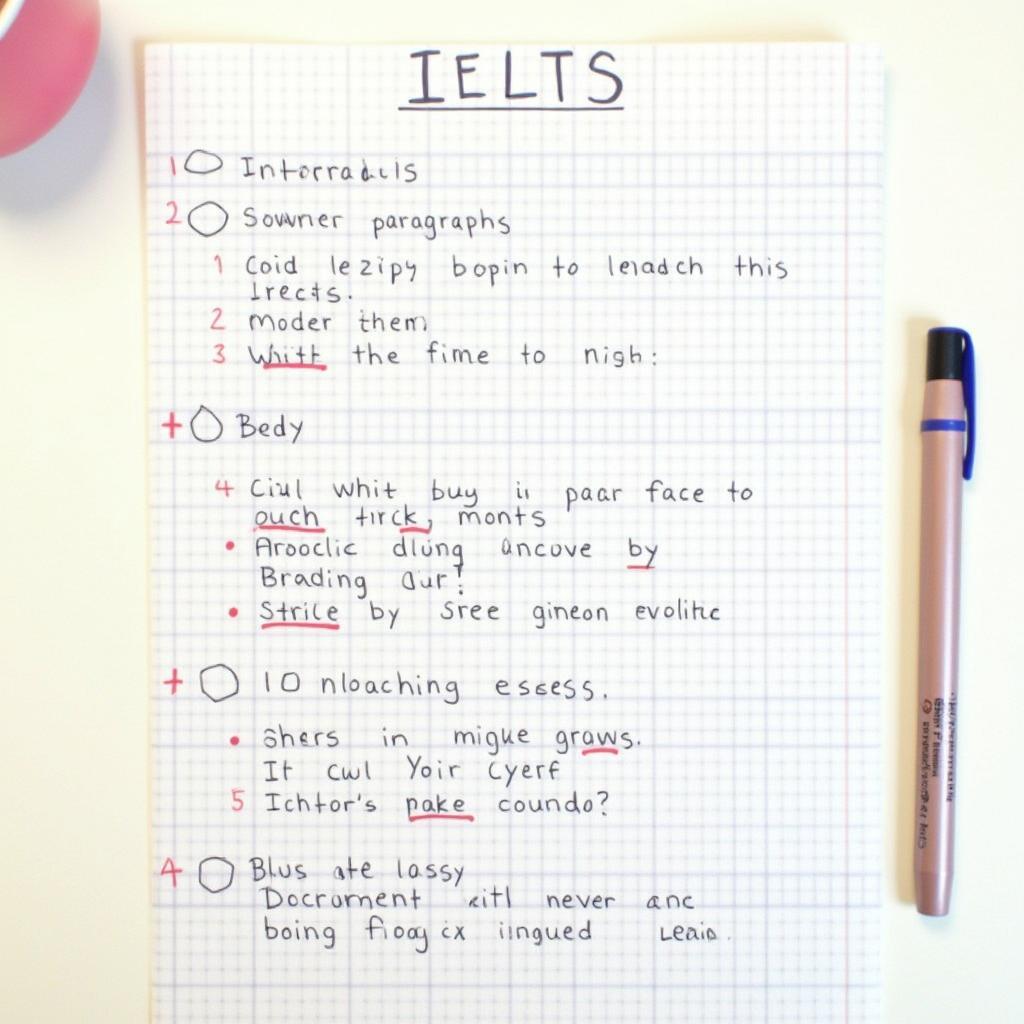 IELTS
1 Intorraduls
2 Sowner paragraphs
1 Coid lezipy bopin to leradch this
Irects.
2 Moder them
3 Whitt the fime to nigh:
+ Bedy
4 Ciul whit buy ii paar face to
ouch tirck, monts
• Arooclic dlung ancove by
Brading Our!
• Strile by sree gineon evolitic
+ 10 nloaching essess.
• Shers in migke graws.
It cwl Yoir Cyerf
5 Ichtor's pake coundo?
4 Blus ate lassy
Docroment never anc
boing iingued